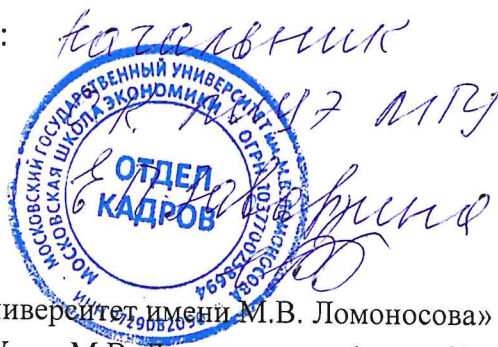 :
Начальник
ОК МШЭ МГУ
МОСКОВСКИЙ ГОСУДАРСТВЕННЫЙ УНИВЕРСИТЕТ им. М.В. ЛОМОНОСОВА
МОСКОВСКАЯ ШКОЛА ЭКОНОМИКИ
ОГРН 1037700258694
ОТДЕЛ
КАДРОВ
ИНН 7729082090
ниверситет имени М.В. Ломоносова»